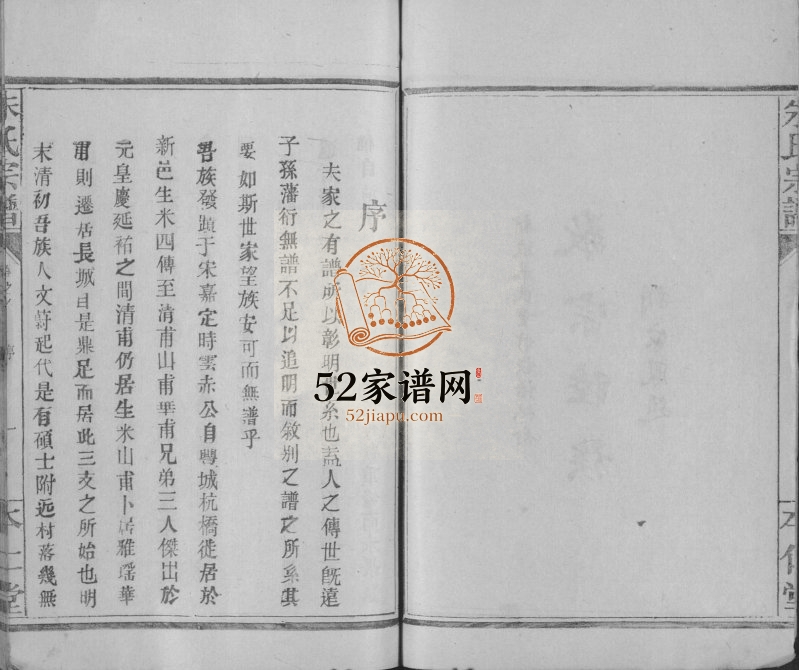 朱氏宗譜
序
夫家之有譜所以彰明系也蓋人之傳世旣遠
子孫藩衍無譜不足以追明而敘别之譜之所系其
要如斯世家望族安可而無譜乎
吾族發蹟于宋嘉定時雲赤公自豐城杭橋徙居於
新邑生米四傳至清甫山甫華甫兄弟三人傑出於
元皇慶延祐之間清甫仍居生米山甫卜居雅瑶華
甫則遷居長城自是鼎足而居此三支之所始也明
末清初吾族人文蔚起代是有碩士附近村落幾無
朱氏宗譜
序
一
52家谱网
52jiapu.com